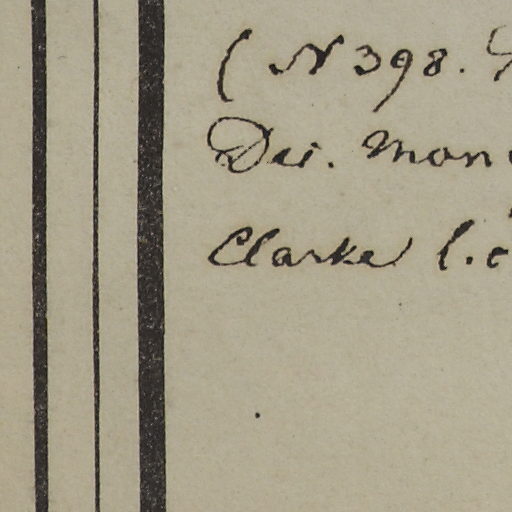 ( N 398.
Dei. Mon
Clarke l.c